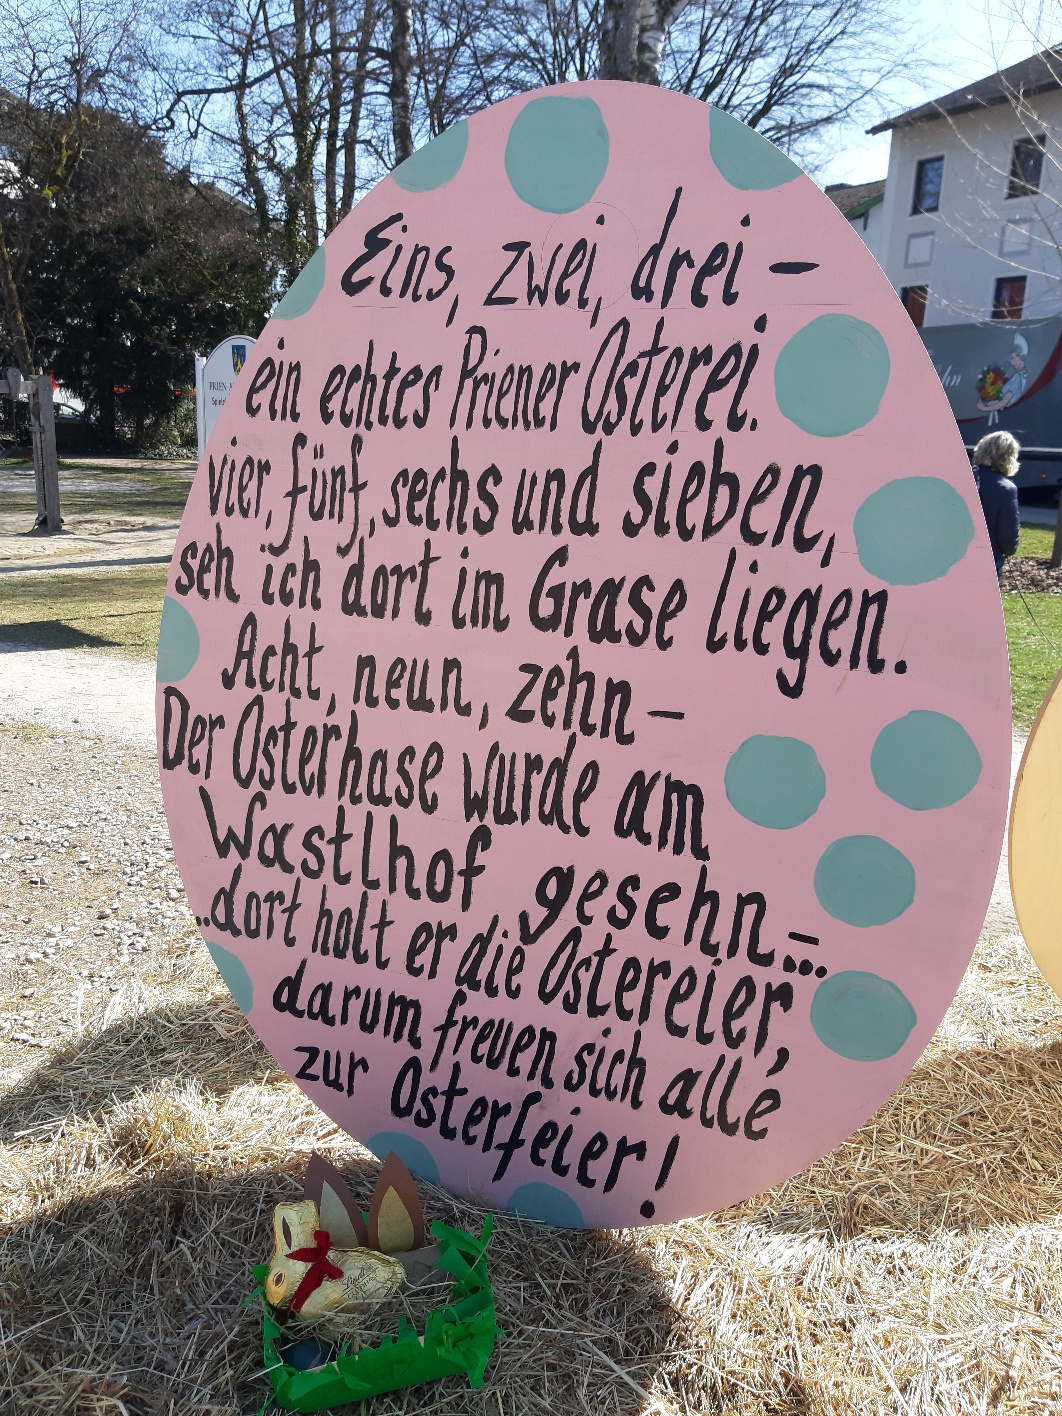 Eins, zwei, drei –
ein echtes Priener Osterei.
vier, fünf, sechs und sieben,
seh ich dort im Grase liegen.
Acht, neun, zehn –
Der Osterhase wurde am
Wastlhof gesehn –...
..dort holt er die Ostereier,
darum freuen sich alle
zur Osterfeier!
PRIEN A